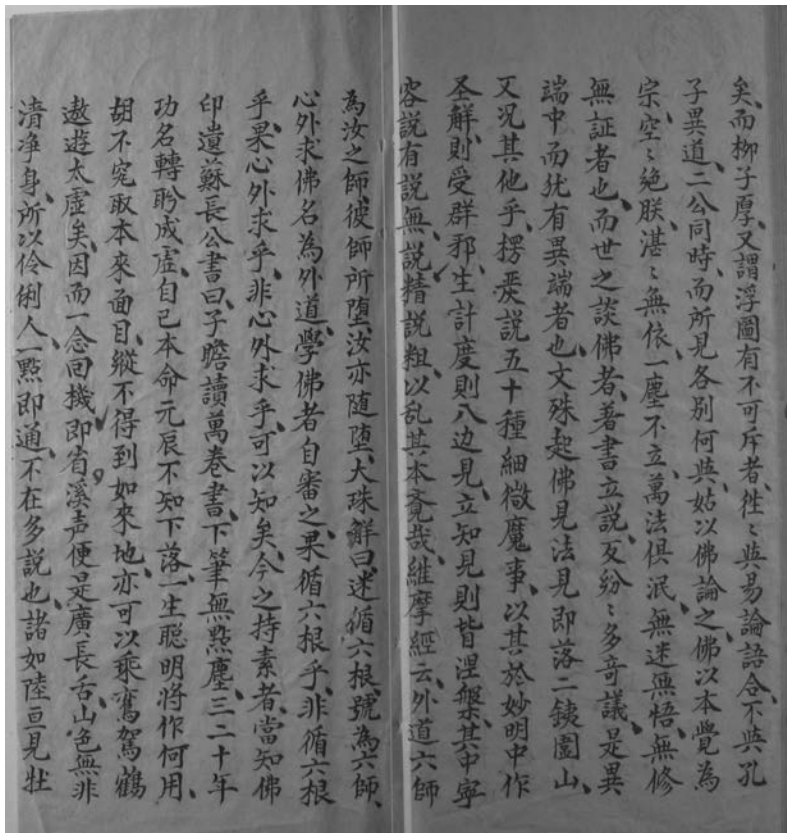 矣、而柳子厚、又謂浮圖有不可斥者、徃〻與易論語合、不與孔
子異道、二公同時、而所見各別何與、姑以佛論之、佛以本覺為
宗、空〻絶朕、湛〻無依、一塵不立、萬法俱泯、無迷無悟、無修
無証者也、而世之談佛者、著書立説、反紛〻多奇議、是異
端中而犹有異端者也、文殊起佛見法見即落二鉄圍山、
又况其他乎、楞嚴説五十種細微魔事、以其於妙明中作
圣解、則受群邪、生計度則八边見、立知見則皆涅槃、其中寧
容説有説無、説精説粗、以乱其本覺哉、維摩經云、外道六師
為汝之師、彼師所堕、汝亦随堕、大珠解曰、迷循六根、號為六師、
心外求佛名為外道、學佛者自審之、果循六根乎、非循六根
乎、果心外求乎、非心外求乎、可以知矣、今之持素者、當知佛
印遺蘇長公書曰、子瞻讀萬卷書、下筆無點塵、三二十年
功名轉盻成虚、自己本命元辰不知下落、一生聡明將作何用、
胡不究取本來面目、縱不得到如來地、亦可以乘鸞駕鶴
遨遊太虛矣、因而一念回機、即省溪声便是廣長舌、山色無非
清净身、所以伶俐人、一點即通、不在多説也、諸如陸亘見牡